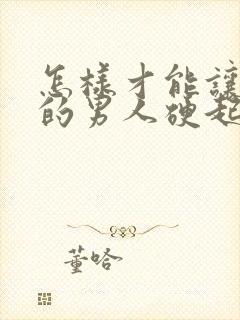 怎樣才能讓
的男人硬起
董哈